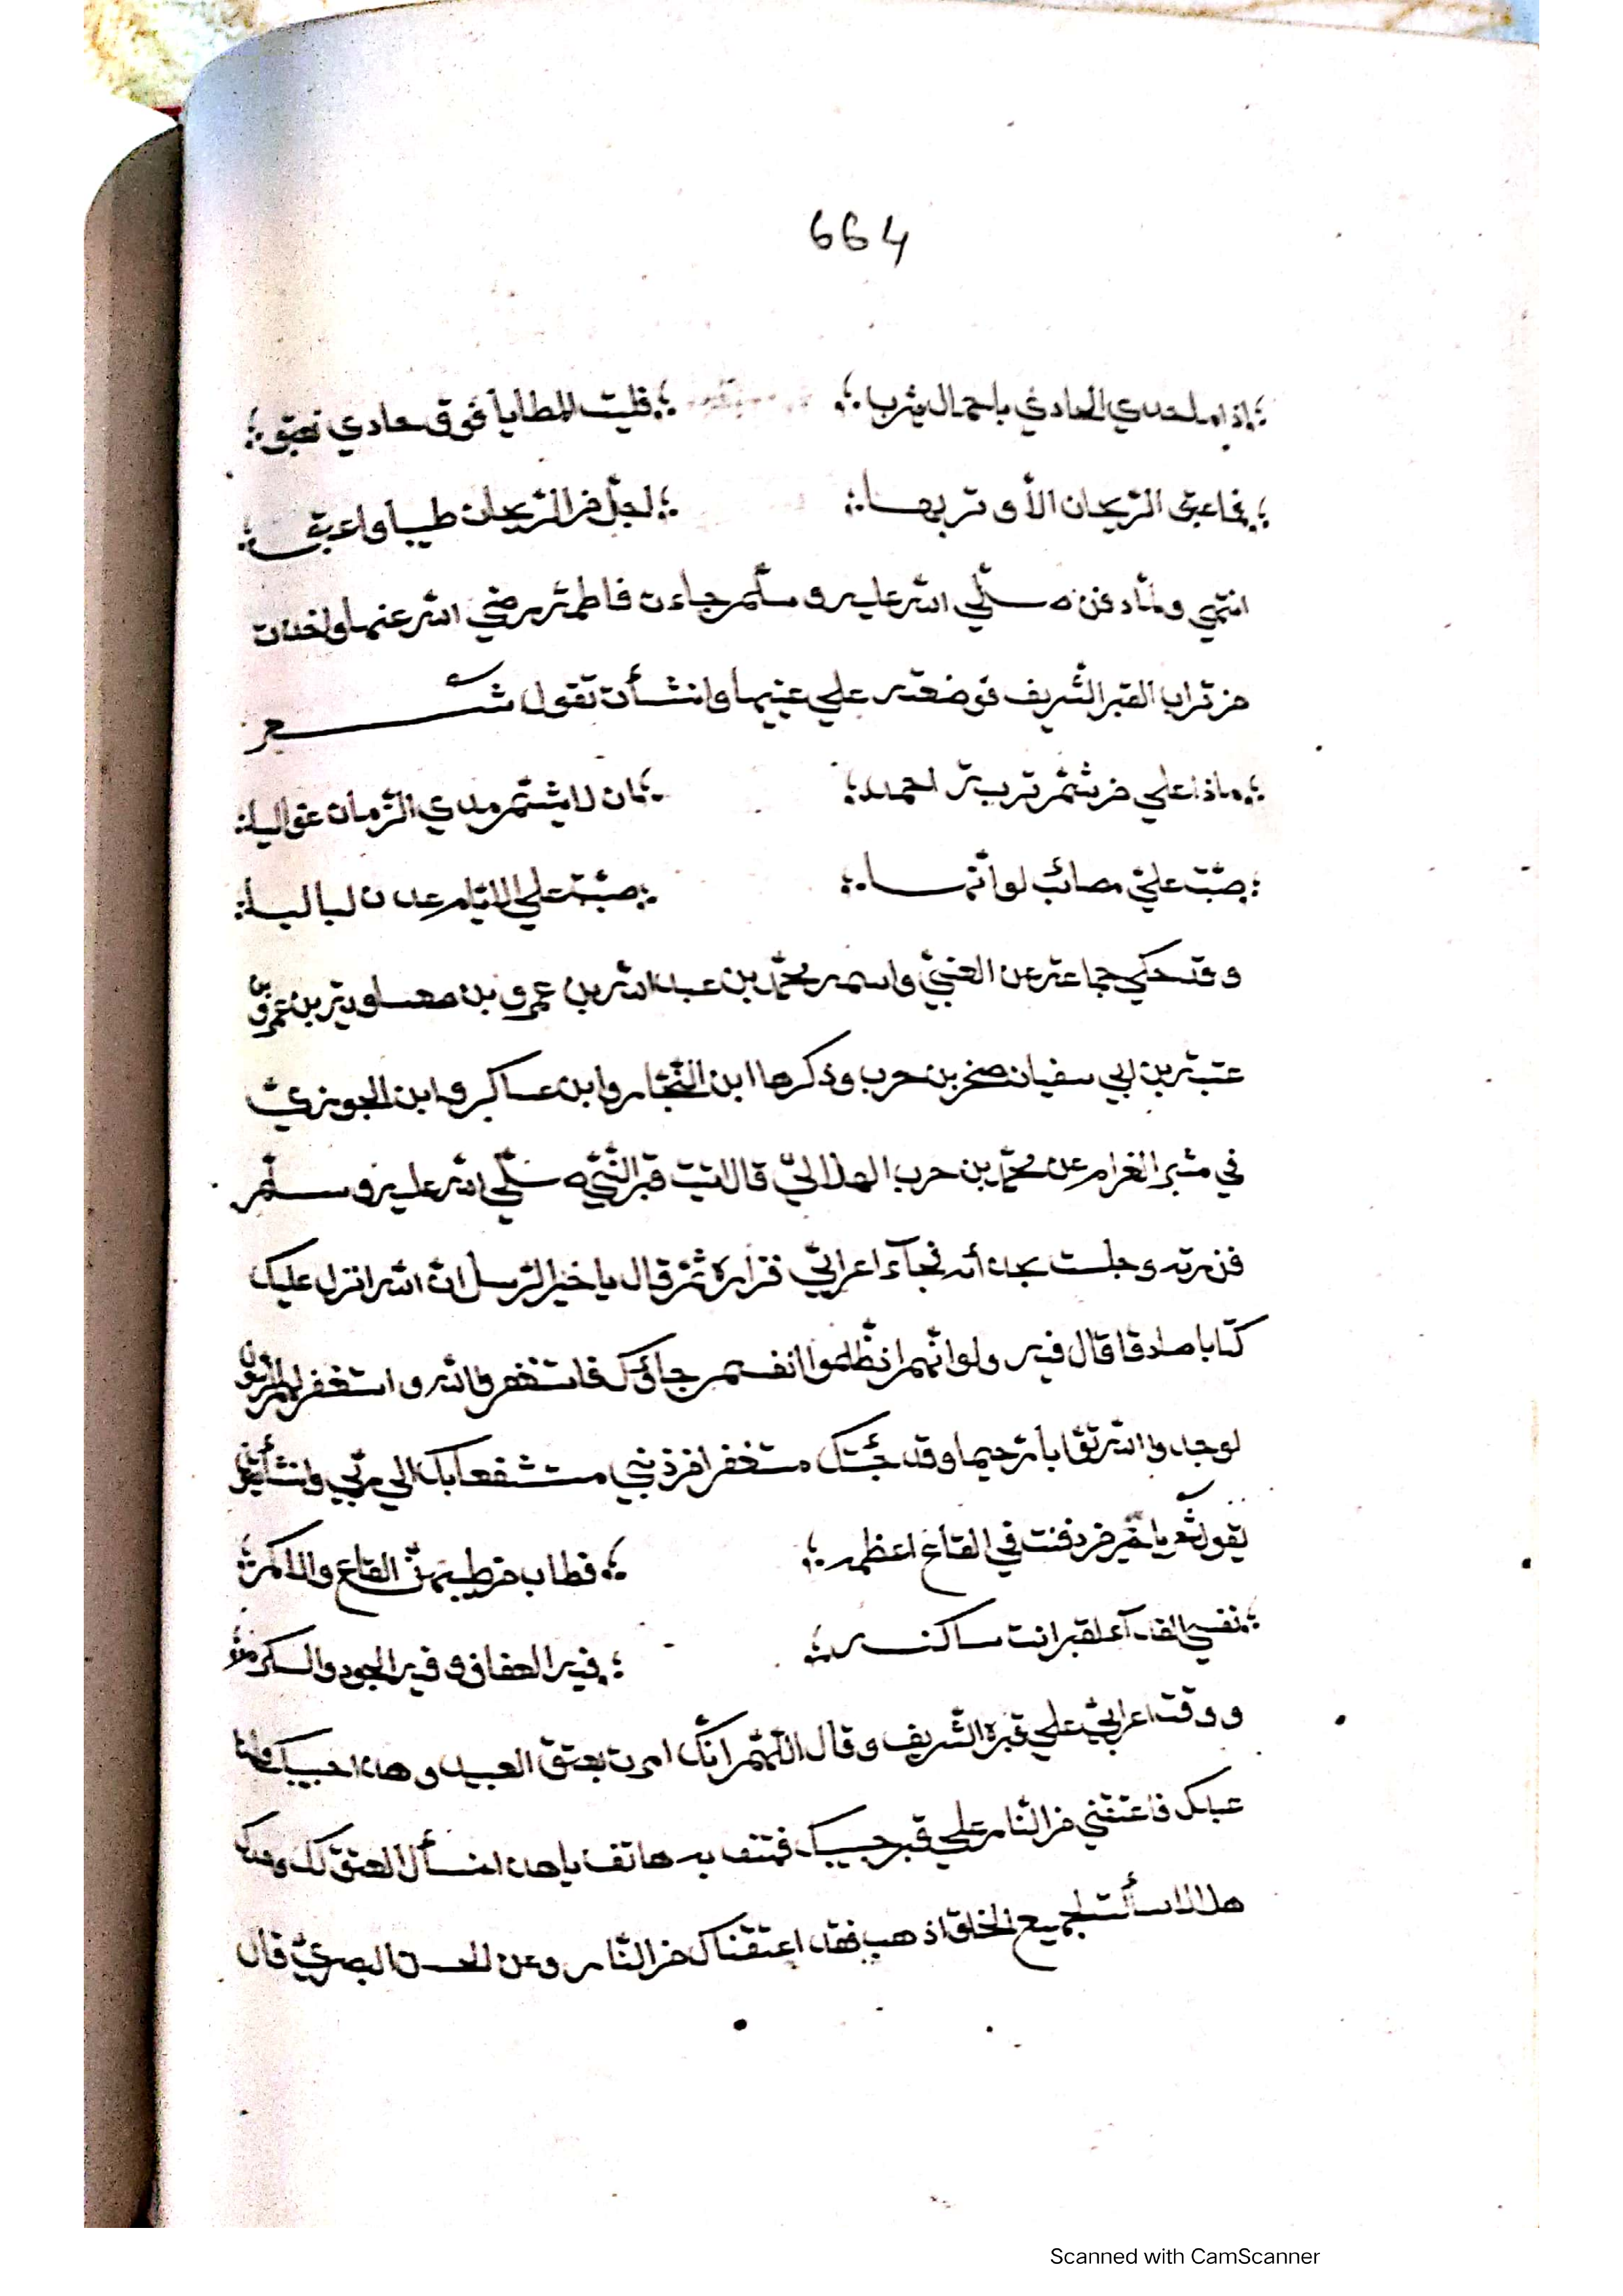 664
؛ اذا ما حدي الحادي باجمال يثرب ؛ ؛ فليت المطايا فوق حادي تعبق ؛
؛ فما عبق الريحان الا و تربها ؛ ؛ اجل من الريحان طيبا و اعبق ؛
انتهي ولما دفن صلي الله عليه وسلم جاءت فاطمة رضي الله عنها واخذت
من تراب القبر الشريف فوضعته علي عينيها وانشأت تقول شعر
؛ ماذا علي من شم تربة احمد ؛ ؛ ان لا يشم مدي الزمان غواليا ؛
؛ صبت علي مصائب لو انها ؛ ؛ صبت علي الايام عدن لياليا ؛
وقد حكي جماعة عن العتبي واسمه محمد بن عبد الله بن عمرو بن معاوية بن عمرو بن
عتبة بن ابي سفيان صخر بن حرب وذكرها ابن النجار وابن عساكر وابن الجوزي
في مثير الغرام عن محمد بن حرب الهلالي قال اتيت قبر النبي صلي الله عليه وسلم
فزرته وجلست بحذائه فجآء اعرابي فزاره ثم قال يا خير الرسل ان الله انزل عليك
كتابا صادقا قال فيه ولو انهم اذ ظلموا انفسهم جاؤك فاستغفروا الله واستغفر لهم الرسول
لوجدوا الله توابا رحيما وقد جئتك مستغفرا من ذنبي مستشفعا بك الي ربي وانشأ
يقول شعر يا خير من دفنت في القاع اعظمه ؛ ؛ فطاب من طيبهن القاع والاكم ؛
؛ نفسي الفدآء لقبر انت ساكنه ؛ ؛ فيه العفاف وفيه الجود والكرم ؛
ووقف اعرابي علي قبره الشريف وقال اللهم انك امرت بعتق العبيد وهذا حبيبك وانا
عبدك فاعتقني من النار علي قبر حبيبك فهتف به هاتف يا هذا تسأل العتق لك وحدك
هلا سألت لجميع الخلق اذهب فقد اعتقناك من النار وعن الحسن البصري قال
Scanned with CamScanner